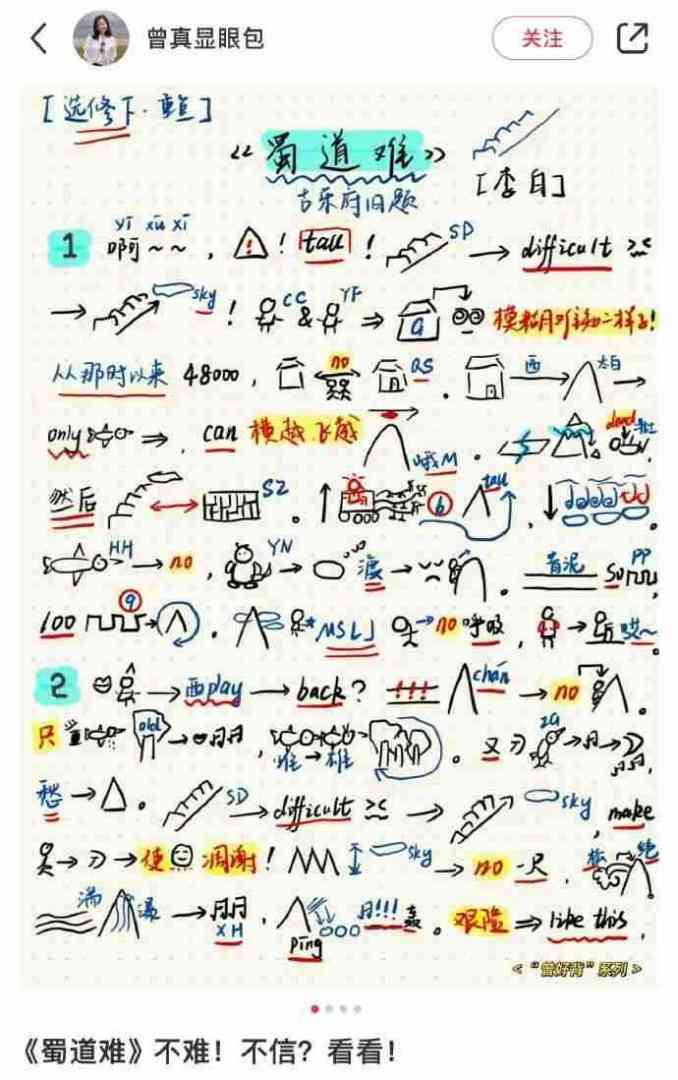 曾真显眼包
关注
[选修下·重点]
《蜀道难》
[李白]
古乐府旧题
1 yī xū xī
啊~~,!tall!SD→difficult
→sky!CC&YF⇒a 模糊
从那时以来 48000,no QS。西→太白→
only⇒,can 横越.飞越 峨M。dead 壮
然后 SZ。b tall,
HH→no,YN→渡→。青泥 so PP
100 q→。*MSLJ→no呼吸,→哎~。
2 →西play→back?!!! chán→no。
只 old→月月,雌→雄。又 zg→月→
愁→△。SD→difficult→sky,make
→→使 凋谢!sky→no一尺,松 绝
满 瀑→月月 XH,pīng 月!!!轰。艰险⇒like this,
<“曾好背”系列>
《蜀道难》不难!不信?看看!